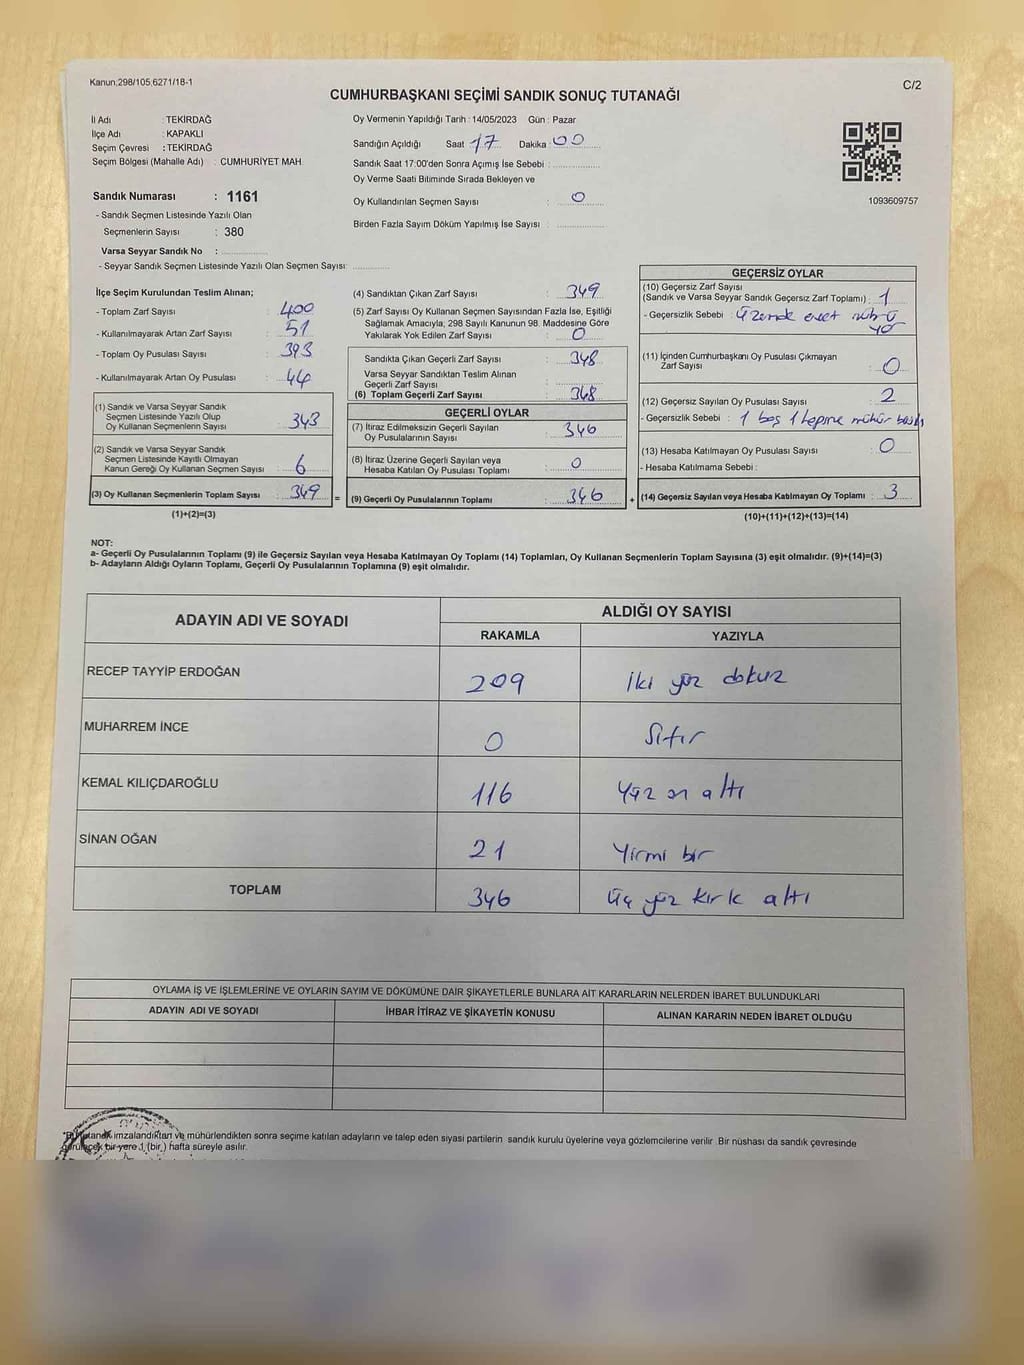 Kanun;298/105;6271/18-1
C/2
CUMHURBAŞKANI SEÇİMİ SANDIK SONUÇ TUTANAĞI
İl Adı : TEKİRDAĞ
İlçe Adı : KAPAKLI
Seçim Çevresi : TEKİRDAĞ
Seçim Bölgesi (Mahalle Adı) : CUMHURİYET MAH.
Sandık Numarası : 1161
- Sandık Seçmen Listesinde Yazılı Olan
Seçmenlerin Sayısı : 380
Varsa Seyyar Sandık No :
- Seyyar Sandık Seçmen Listesinde Yazılı Olan Seçmen Sayısı:
Oy Vermenin Yapıldığı Tarih : 14/05/2023 Gün : Pazar
Sandığın Açıldığı Saat 17 Dakika : 00
Sandık Saat 17:00'den Sonra Açılmış İse Sebebi :
Oy Verme Saati Bitiminde Sırada Bekleyen ve
Oy Kullandırılan Seçmen Sayısı : 0
Birden Fazla Sayım Döküm Yapılmış İse Sayısı :
1093609757
İlçe Seçim Kurulundan Teslim Alınan;
- Toplam Zarf Sayısı : 400
- Kullanılmayarak Artan Zarf Sayısı : 51
- Toplam Oy Pusulası Sayısı : 393
- Kullanılmayarak Artan Oy Pusulası : 44
(1) Sandık ve Varsa Seyyar Sandık
Seçmen Listesinde Yazılı Olup
Oy Kullanan Seçmenlerin Sayısı : 343
(2) Sandık ve Varsa Seyyar Sandık
Seçmen Listesinde Kayıtlı Olmayan
Kanun Gereği Oy Kullanan Seçmen Sayısı : 6
(3) Oy Kullanan Seçmenlerin Toplam Sayısı : 349
(1)+(2)=(3)
=
(4) Sandıktan Çıkan Zarf Sayısı : 349
(5) Zarf Sayısı Oy Kullanan Seçmen Sayısından Fazla İse, Eşitliği
Sağlamak Amacıyla; 298 Sayılı Kanunun 98. Maddesine Göre
Yakılarak Yok Edilen Zarf Sayısı : 0
Sandıkta Çıkan Geçerli Zarf Sayısı : 348
Varsa Seyyar Sandıktan Teslim Alınan
Geçerli Zarf Sayısı :
(6) Toplam Geçerli Zarf Sayısı : 348
GEÇERLİ OYLAR
(7) İtiraz Edilmeksizin Geçerli Sayılan
Oy Pusulalarının Sayısı : 346
(8) İtiraz Üzerine Geçerli Sayılan veya
Hesaba Katılan Oy Pusulası Toplamı : 0
(9) Geçerli Oy Pusulalarının Toplamı : 346
+
GEÇERSİZ OYLAR
(10) Geçersiz Zarf Sayısı
(Sandık ve Varsa Seyyar Sandık Geçersiz Zarf Toplamı) : 1
- Geçersizlik Sebebi : üzerinde evet mührü
(11) İçinden Cumhurbaşkanı Oy Pusulası Çıkmayan
Zarf Sayısı : 0
(12) Geçersiz Sayılan Oy Pusulası Sayısı : 2
- Geçersizlik Sebebi : 1 boş 1 hepine mühür
(13) Hesaba Katılmayan Oy Pusulası Sayısı : 0
- Hesaba Katılmama Sebebi :
(14) Geçersiz Sayılan veya Hesaba Katılmayan Oy Toplamı : 3
(10)+(11)+(12)+(13)=(14)
NOT:
a- Geçerli Oy Pusulalarının Toplamı (9) ile Geçersiz Sayılan veya Hesaba Katılmayan Oy Toplamı (14) Toplamları, Oy Kullanan Seçmenlerin Toplam Sayısına (3) eşit olmalıdır. (9)+(14)=(3)
b- Adayların Aldığı Oyların Toplamı, Geçerli Oy Pusulalarının Toplamına (9) eşit olmalıdır.
ADAYIN ADI VE SOYADI
ALDIĞI OY SAYISI
RAKAMLA YAZIYLA
RECEP TAYYİP ERDOĞAN 209 iki yüz dokuz
MUHARREM İNCE 0 Sıfır
KEMAL KILIÇDAROĞLU 116 Yüz on altı
SİNAN OĞAN 21 Yirmi bir
TOPLAM 346 Üç yüz kırk altı
OYLAMA İŞ VE İŞLEMLERİNE VE OYLARIN SAYIM VE DÖKÜMÜNE DAİR ŞİKAYETLERLE BUNLARA AİT KARARLARIN NELERDEN İBARET BULUNDUKLARI
ADAYIN ADI VE SOYADI İHBAR İTİRAZ VE ŞİKAYETİN KONUSU ALINAN KARARIN NEDEN İBARET OLDUĞU
imzalandıktan ve mühürlendikten sonra seçime katılan adayların ve talep eden siyasi partilerin sandık kurulu üyelerine veya gözlemcilerine verilir. Bir nüshası da sandık çevresinde
görülecek bir yere 1 (bir) hafta süreyle asılır.